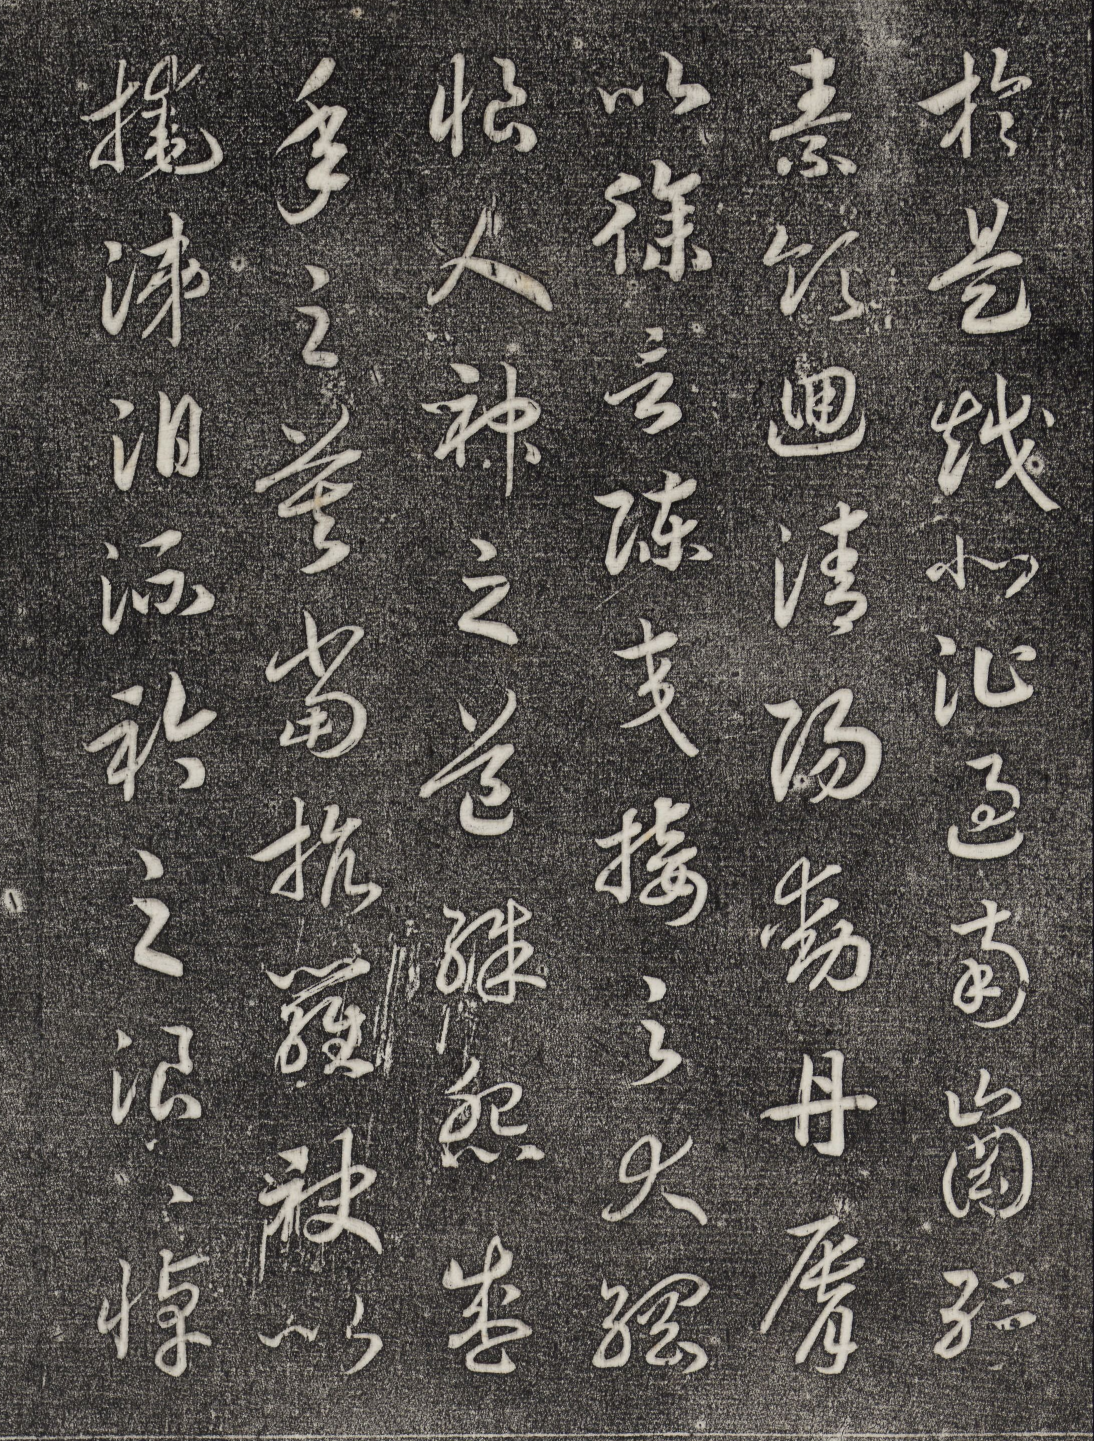 於是越北沚過南岡紆
素領迴清陽動丹脣
以徐言陳交接之大綱
恨人神之道殊怨盛
年之莫當抗羅袂以
掩涕泪流於之浪浪悼